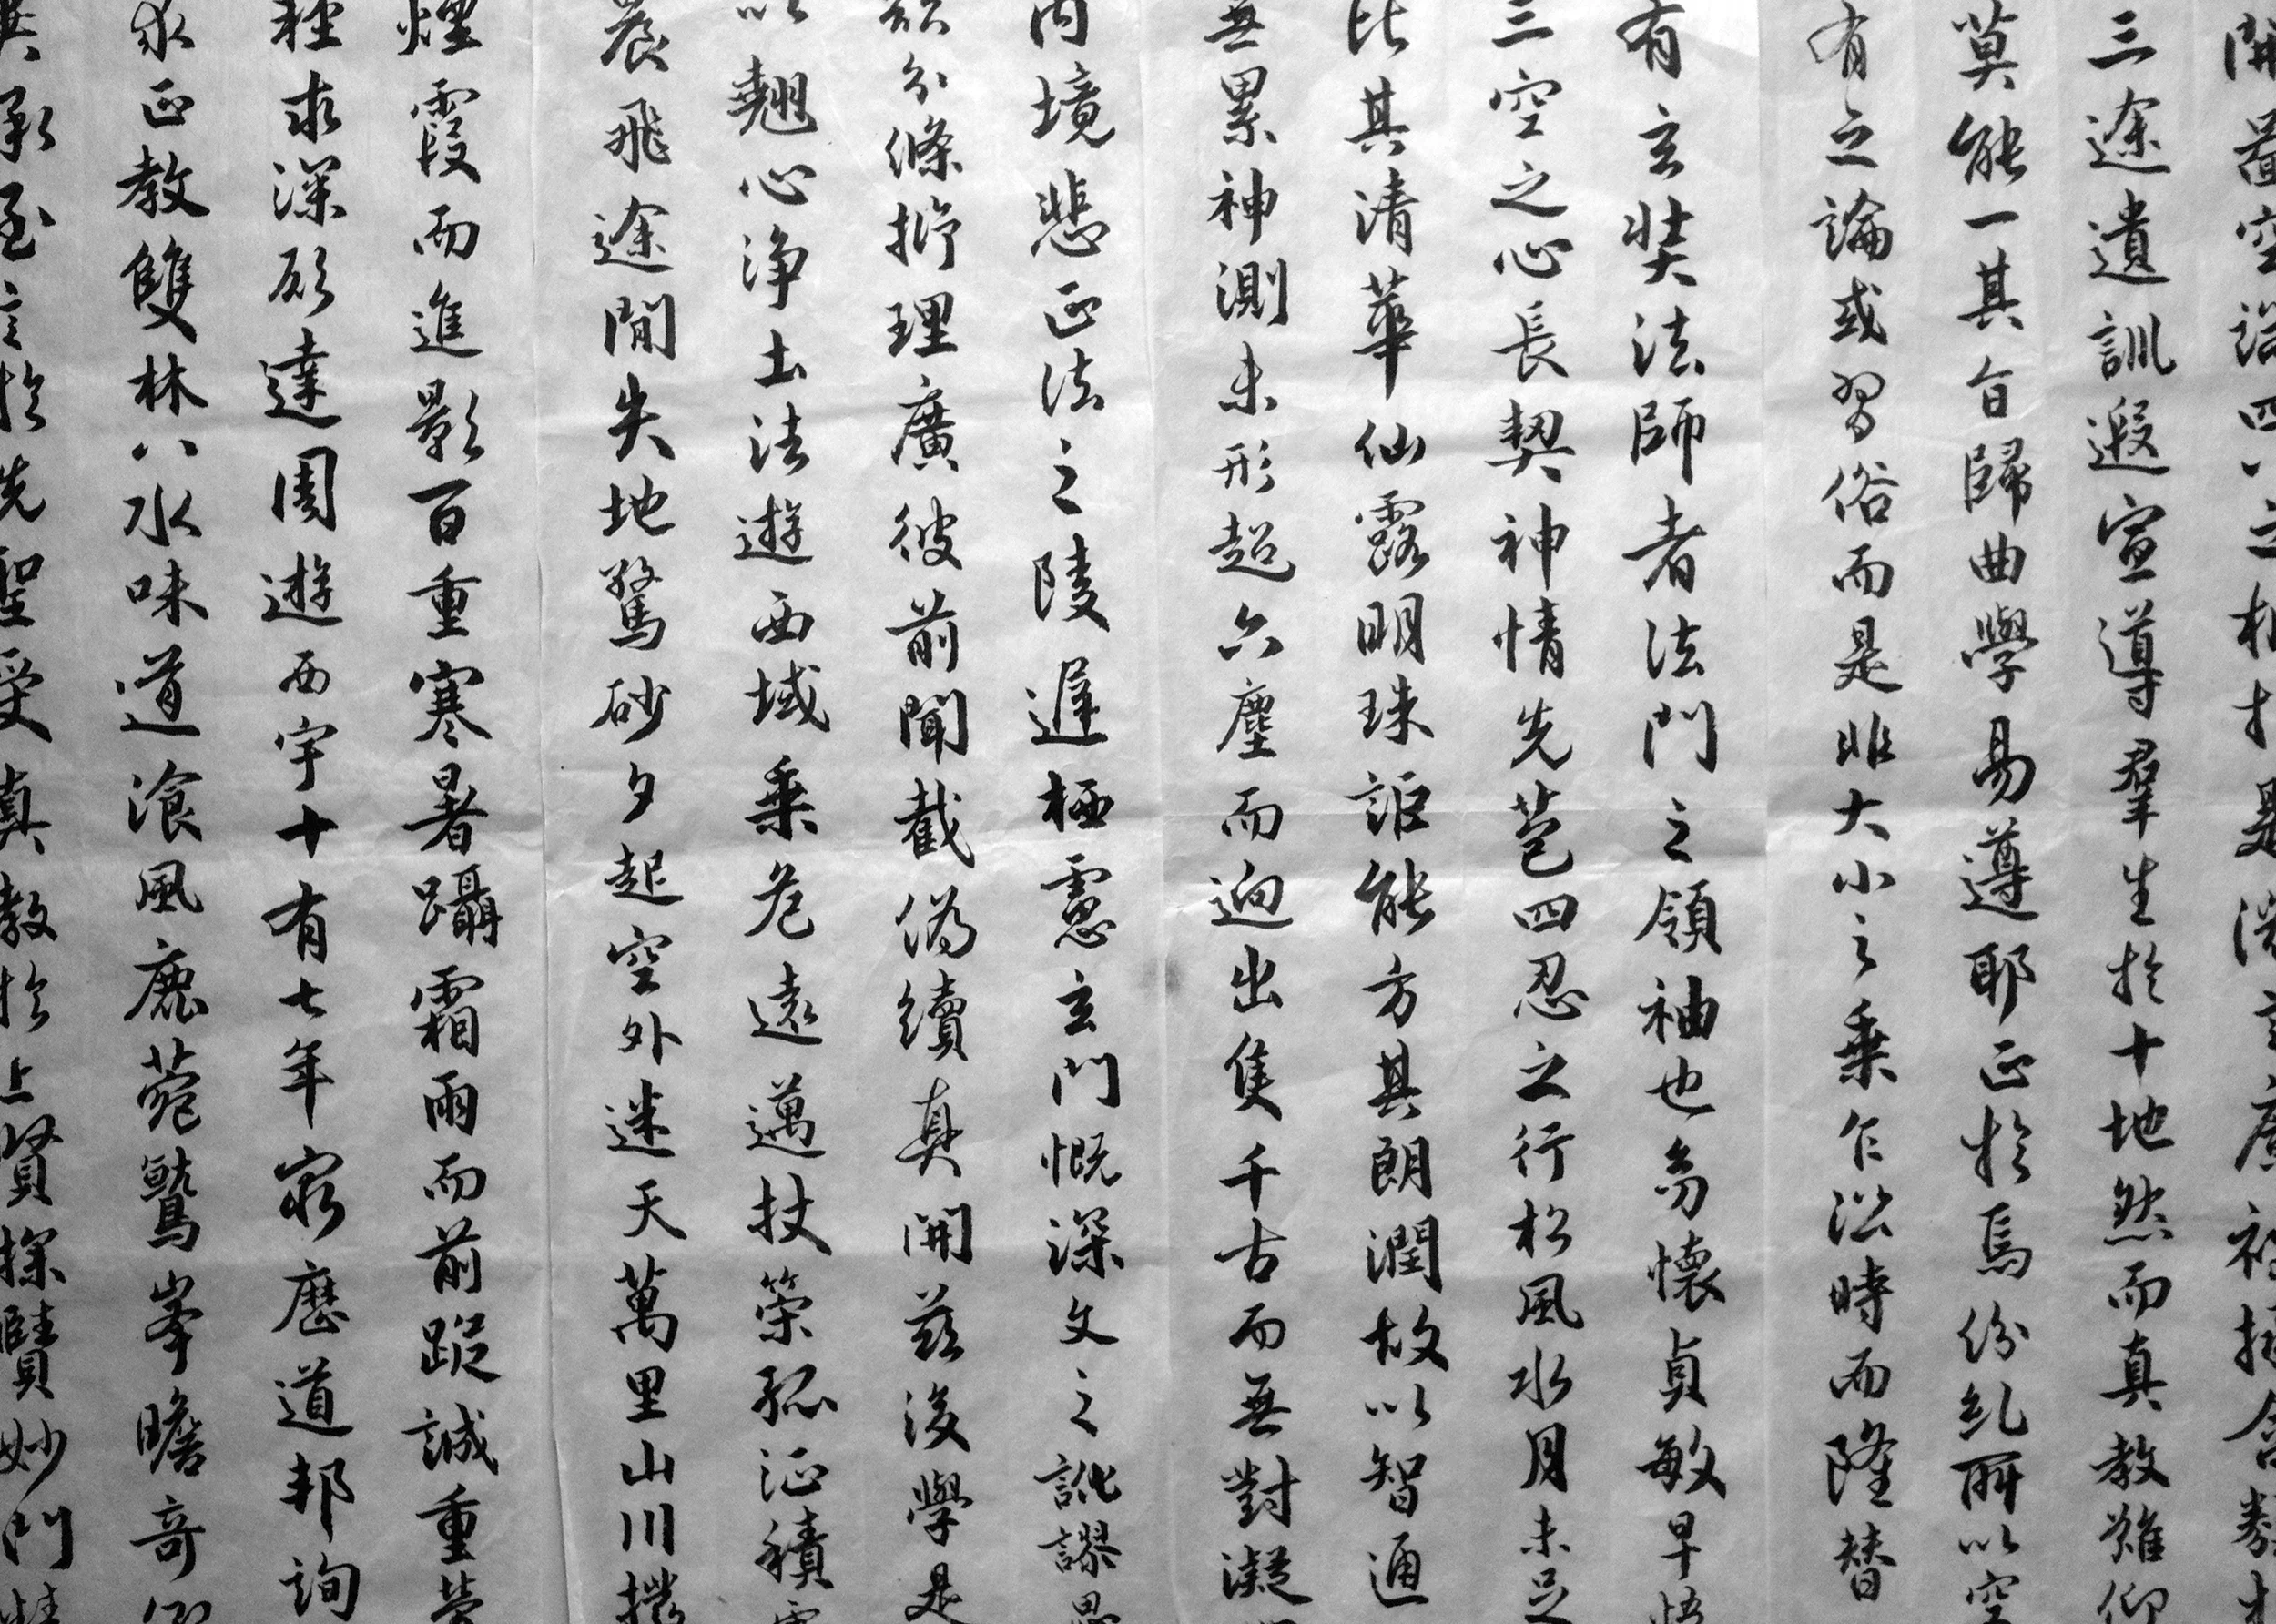 開圖空端四八之相
三途遺訓遐宣導羣生於十地然而真教難仰
莫能一其旨歸曲學易遵耶正於焉紛糺所以空
有之論或習俗而是非大小之乘乍沿時而隆替
有玄奘法師者法門之領袖也㓜懷貞敏早悟
三空之心長契神情先苞四忍之行松風水月未足
比其清華仙露明珠詎能方其朗潤故以智通
無累神測未形超六塵而迥出隻千古而無對凝
内境悲正法之陵遲栖慮玄門慨深文之訛謬思
欲分條析理廣彼前聞截偽續真開茲後學是
以翹心淨土法遊西域乘危遠邁杖策孤征積雪
晨飛途閒失地驚砂夕起空外迷天萬里山川撥
煙霞而進影百重寒暑躡霜雨而前蹤誠重勞
輕求深願達周遊西宇十有七年窮歷道邦詢
求正教雙林八水味道飡風鹿菀鷲峯瞻奇仰
異承至言於先聖受真教於上賢探賾妙門精